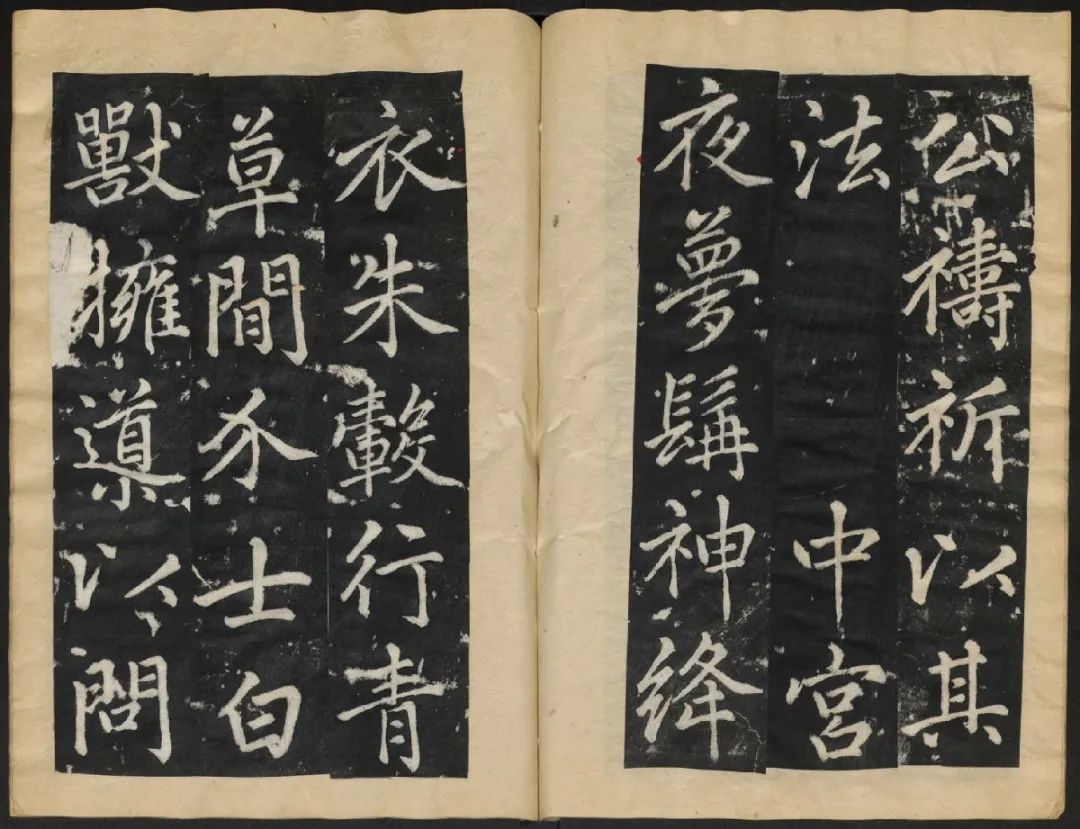 公禱祈以其
法　中宮
夜夢髯神絳
衣朱轂行青
草間介士白
獸擁導以問